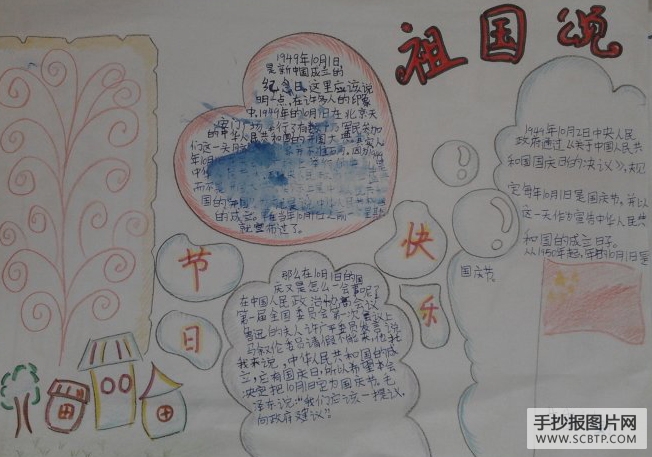 祖国说
1949年10月1日,
是新中国成立的
纪念日。这里应该说
明一点,在许多人的印象
中,1949年的10月1日在北京天
的中华人民共和国的开国大典。
的成立。
就宣布过了。
1949年10月2日中央人民
政府通过《关于中国人民共
和国国庆日的决议》,规
定每年10月1日是国庆节,并以
这一天作为宣告中华人民共
和国的成立日子。
从1950年起,年的10月1日是
国庆节。
节
日
快
乐
那么在10月1日的国
庆又是怎么一会事呢?
在中国人民政治协商会议
第一届全国委员会第一次会议上
鲁迅的夫人许广平委员发言说
马叙伦委员请假不能来,他托
我来说,中华人民共和国的成
立,应有国庆日,所以希望本会
决定把10月1日定为国庆节。毛
泽东说"我们应该一提议,
向政府建议"。
手抄报图片网
WWW.SCBTP.COM